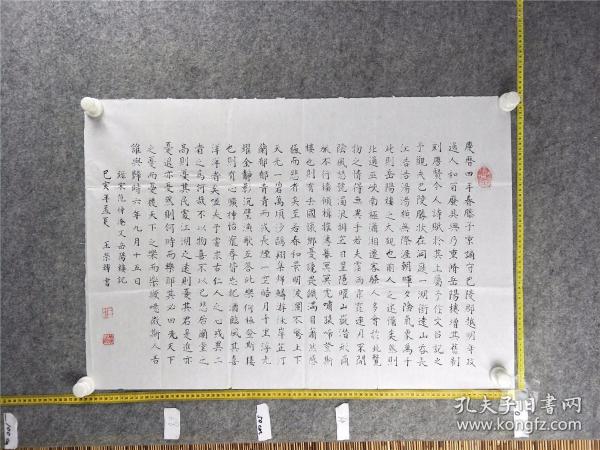 慶曆四年春滕子京謫守巴陵郡越明年政
通人和百廢具興乃重脩岳陽樓增其舊制
刻唐賢今人詩賦於其上屬予作文以記之
予觀夫巴陵勝狀在洞庭一湖銜遠山吞長
江浩浩湯湯橫無際涯朝暉夕陰氣象萬千
此則岳陽樓之大觀也前人之述備矣然則
北通巫峽南極瀟湘遷客騷人多會於此覽
物之情得無異乎若夫霪雨霏霏連月不開
陰風怒號濁浪排空日星隱曜山嶽潛形商
旅不行檣傾楫摧薄暮冥冥虎嘯猿啼登斯
樓也則有去國懷鄉憂讒畏譏滿目蕭然感
極而悲者矣至若春和景明波瀾不驚上下
天光一碧萬頃沙鷗翔集錦鱗游泳岸芷汀
蘭郁郁青青而或長煙一空皓月千里浮光
耀金靜影沉璧漁歌互答此樂何極登斯樓
也則有心曠神怡寵辱皆忘把酒臨風其喜
洋洋者矣嗟夫予嘗求古仁人之心或異二
者之為何哉不以物喜不以己悲居廟堂之
高則憂其民處江湖之遠則憂其君是進亦
憂退亦憂然則何時而樂耶其必曰先天下
之憂而憂後天下之樂而樂歟噫微斯人吾
誰與歸時六年九月十五日
錄宋范仲淹文岳陽樓記
己亥年孟夏 王崇 書
孔夫子旧书网